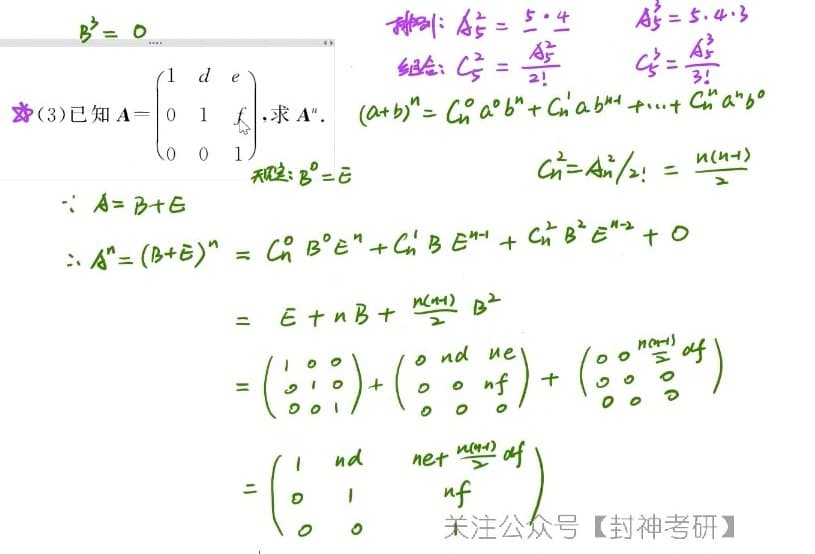 B³ = 0
排列: A₅² = 5·4    A₅³ = 5·4·3
组合: C₅² = A₅²/2!    C₅³ = A₅³/3!
(3)已知 A = (1 d e; 0 1 f; 0 0 1), 求 Aⁿ.
(a+b)ⁿ = Cₙ⁰a⁰bⁿ + Cₙ¹abⁿ⁻¹ + ... + Cₙⁿaⁿb⁰
规定: B⁰ = E    Cₙ² = Aₙ²/2! = n(n-1)/2
∵ A = B+E
∴ Aⁿ = (B+E)ⁿ = Cₙ⁰B⁰Eⁿ + Cₙ¹BEⁿ⁻¹ + Cₙ²B²Eⁿ⁻² + 0
= E + nB + n(n-1)/2 B²
= (1 0 0; 0 1 0; 0 0 1) + (0 nd ne; 0 0 nf; 0 0 0) + (0 0 n(n-1)/2 df; 0 0 0; 0 0 0)
= (1 nd ne+n(n-1)/2 df; 0 1 nf; 0 0 1)
关注公众号【封神考研】